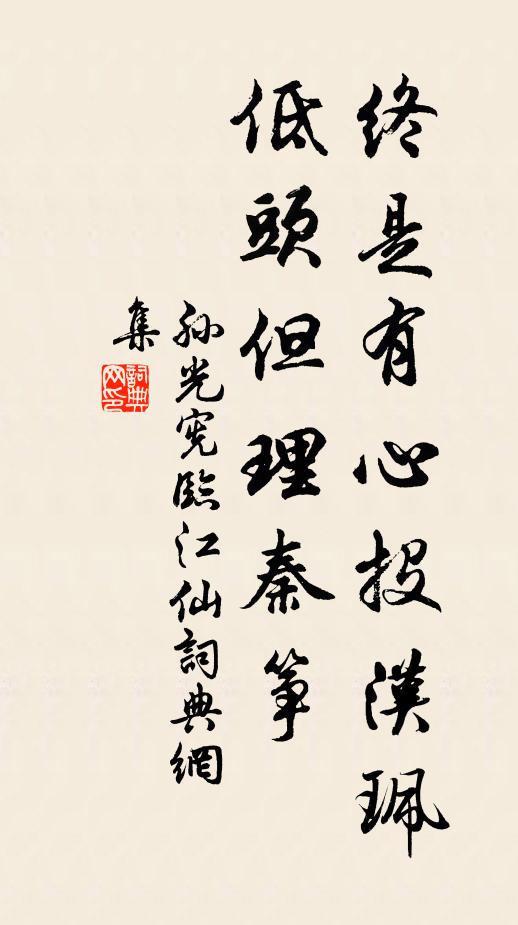 終是有心投漢珮
低頭但理秦箏
孫光憲臨江仙詞典網
集
詞典網印